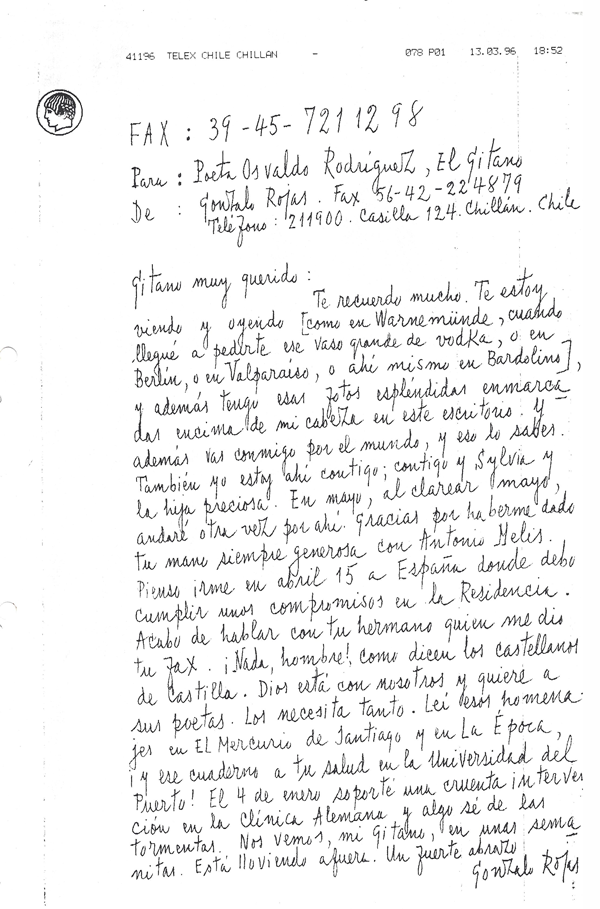 41196 TELEX CHILE CHILLAN - 078 P01 13.03.96 18:52
FAX : 39-45-7211298
Para : Poeta Osvaldo Rodríguez, El Gitano
De : Gonzalo Rojas. Fax 56-42-224879
Teléfono : 211900. Casilla 124. Chillán. Chile
Gitano muy querido :
Te recuerdo mucho. Te estoy
viendo y oyendo [como en Warnemünde, cuando
llegué a pedirte ese vaso grande de vodka, o en
Berlín, o en Valparaíso, o ahí mismo en Bardolino],
y además tengo esas fotos espléndidas enmarca
das encima de mi cabeza en este escritorio. Y
además vas conmigo por el mundo, y eso lo sabes.
También yo estoy ahí contigo; contigo y Sylvia y
la hija preciosa. En mayo, al clarear mayo,
andaré otra vez por ahí. Gracias por haberme dado
tu mano siempre generosa con Antonio Melis.
Pienso irme en abril 15 a España donde debo
cumplir unos compromisos en la Residencia.
Acabo de hablar con tu hermano quien me dio
tu fax. ¡Nada, hombre!, como dicen los castellanos
de Castilla. Dios está con nosotros y quiere a
sus poetas. Los necesita tanto. Leí esos homena-
jes en El Mercurio de Santiago y en La Época,
¡y ese cuaderno a tu salud en la Universidad del
Puerto! El 4 de enero soporté una cruenta interven
ción en la Clínica Alemana y algo sé de las
tormentas. Nos vemos, mi Gitano, en unas sema
nitas. Está lloviendo afuera. Un fuerte abrazo
Gonzalo Rojas